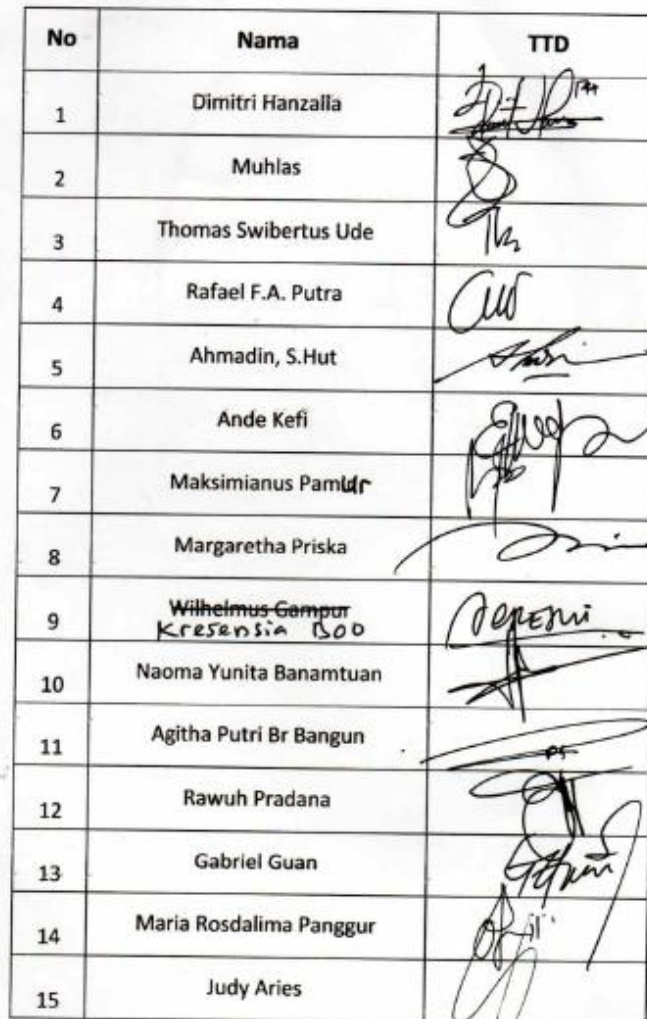 No Nama TTD
1 Dimitri Hanzalia
2 Muhlas
3 Thomas Swibertus Ude
4 Rafael F.A. Putra
5 Ahmadin, S.Hut
6 Ande Kefi
7 Maksimianus Pamur
8 Margaretha Priska
9 Wilhelmus Gampur
Kresensia Boo
10 Naoma Yunita Banamtuan
11 Agitha Putri Br Bangun
12 Rawuh Pradana
13 Gabriel Guan
14 Maria Rosdalima Panggur
15 Judy Aries